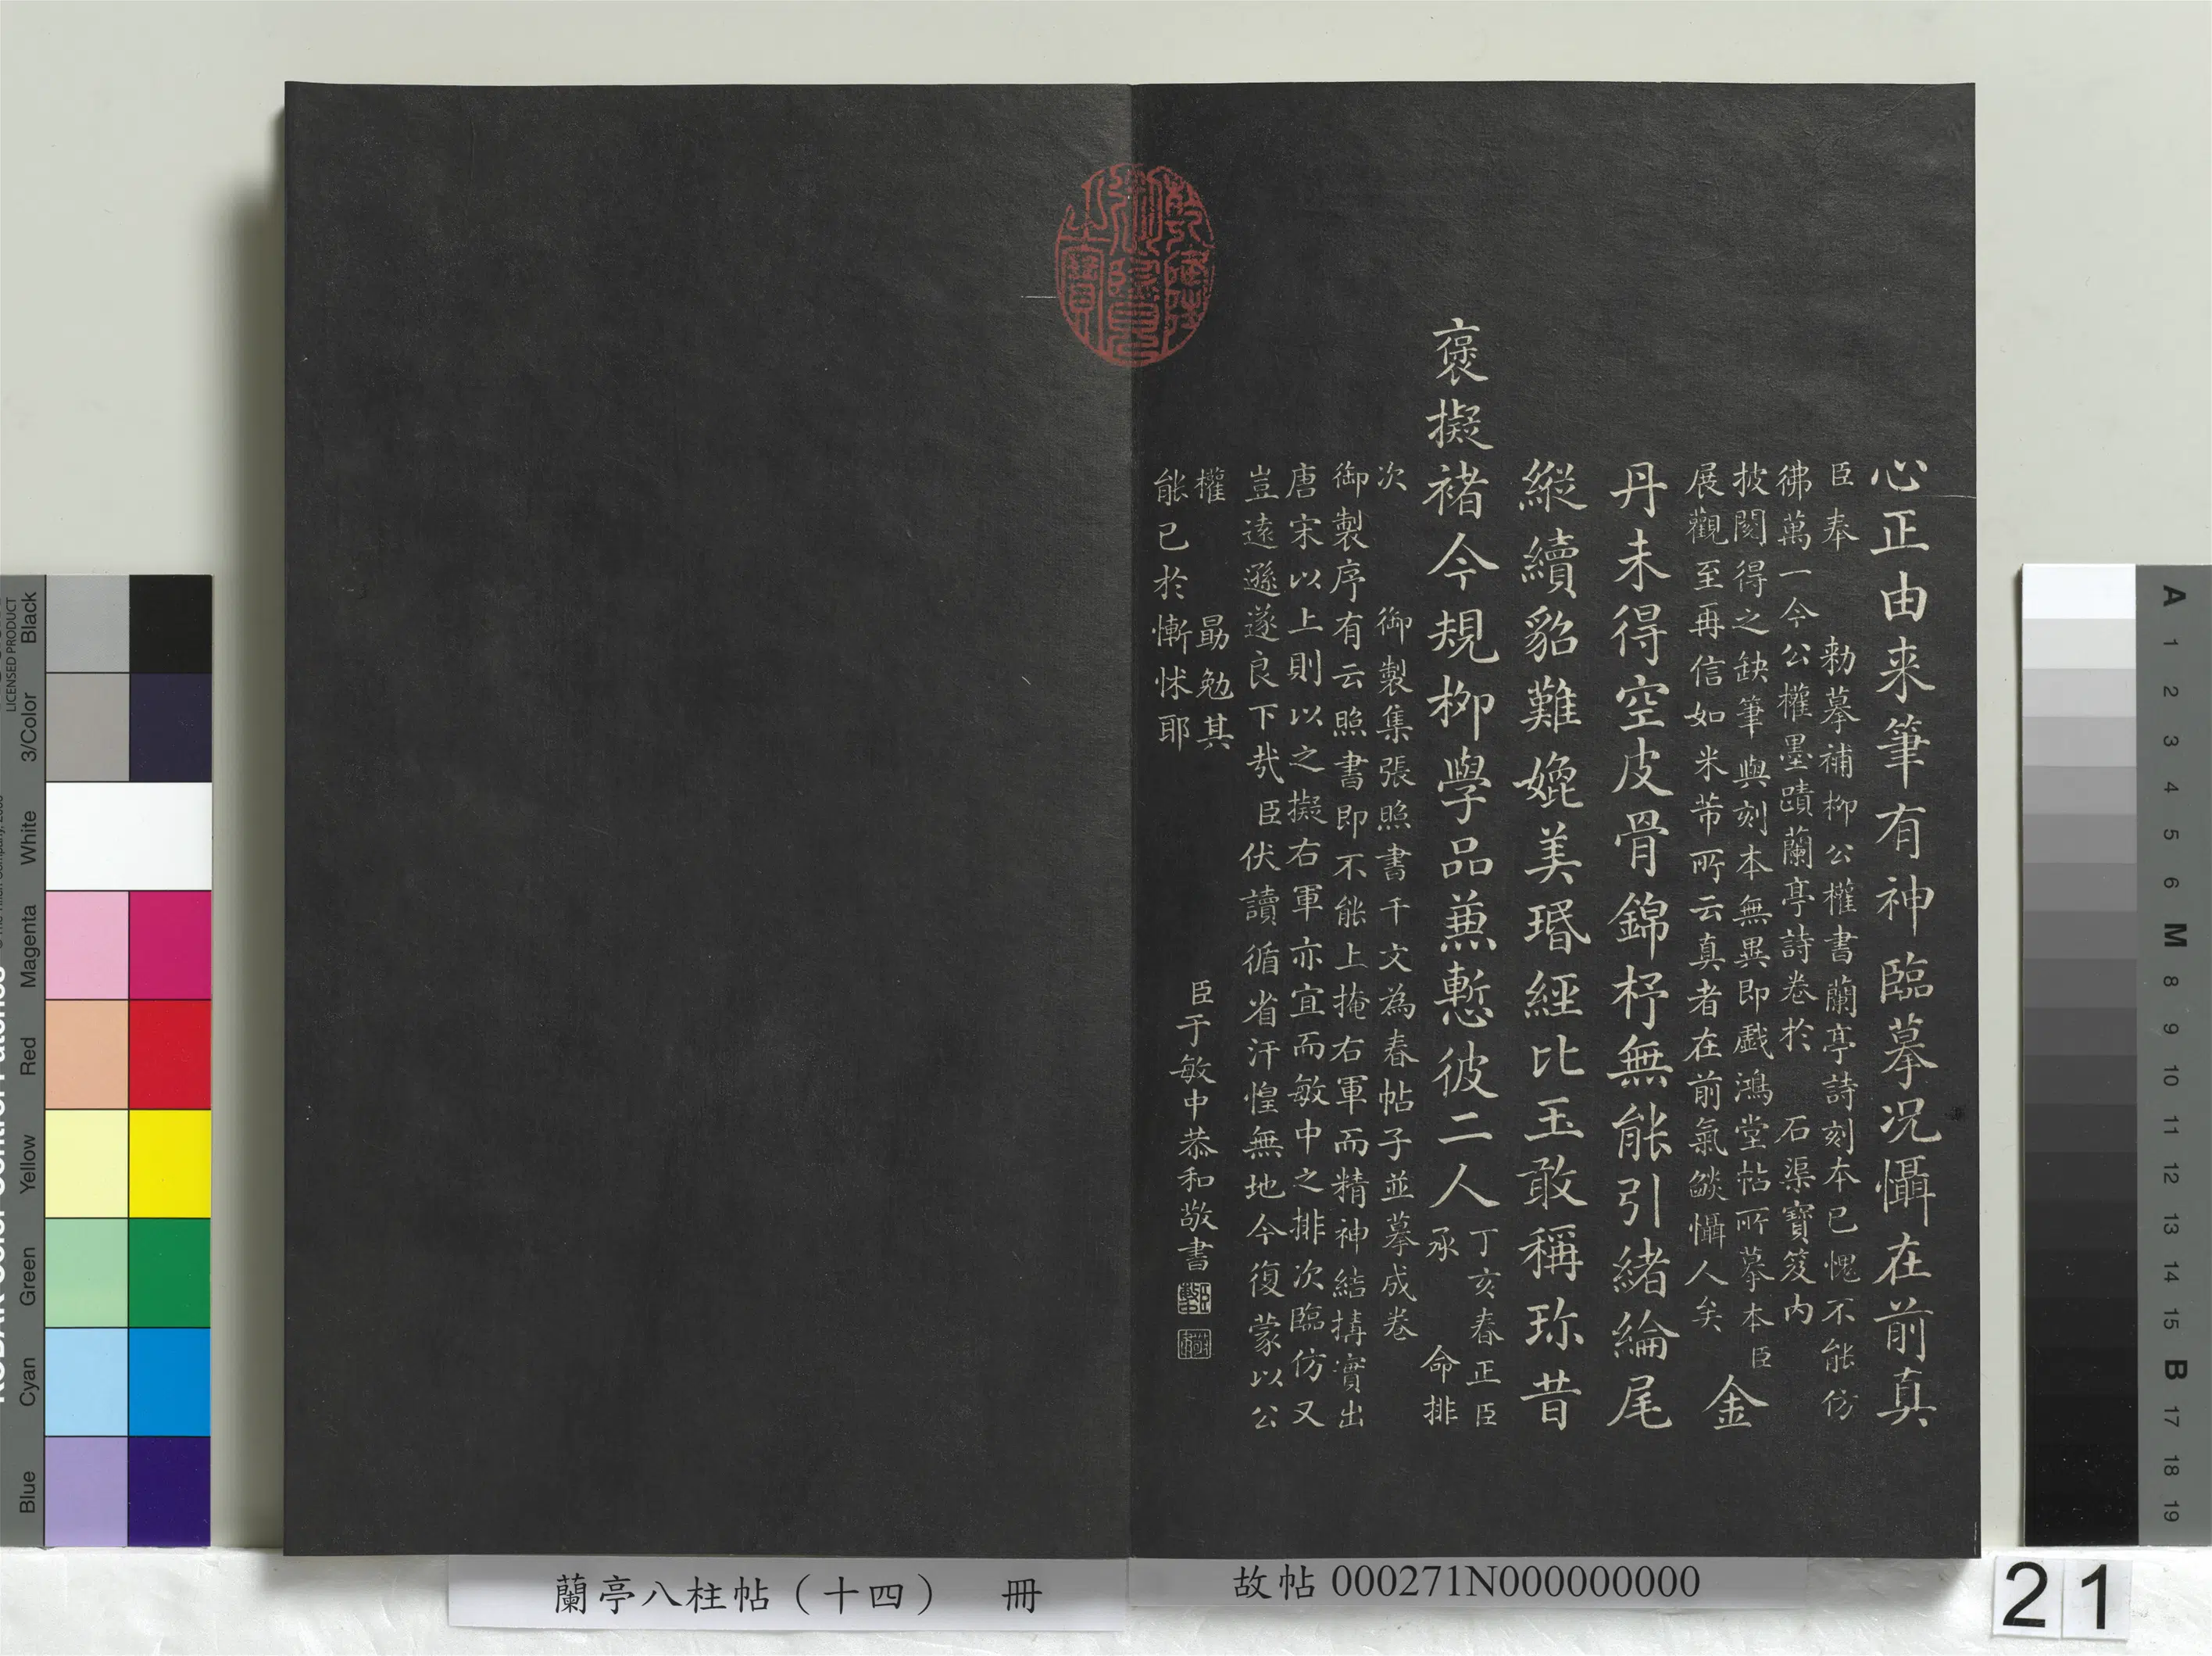 心正由来筆有神臨摹况懾在前真
臣奉 勅摹補柳公權書蘭亭詩刻本已愧不能仿
彿萬一今公權墨蹟蘭亭詩卷於 石渠寶笈内
披閱得之缺筆與刻本無異即戲鴻堂帖所摹本臣
展觀至再信如米芾所云真者在前氣燄懾人矣
金
丹未得空皮骨錦杼無能引緒綸尾
縱續貂難媲美瑉經比玉敢稱珎昔
褒擬褚今規柳學品兼慙彼二人
丁亥春正臣
承 命排
次 御製集張照書千文為春帖子並摹成卷
御製序有云照書即不能上掩右軍而精神結搆實出
唐宋以上則以之擬右軍亦宜而敏中之排次臨仿又
豈遠遜遂良下㢤臣伏讀循省汗惶無地今復蒙以公
權 勗勉其
能已於慚怵耶
臣于敏中恭和敬書
乾隆
之寶
蘭亭八柱帖（十四） 冊
故帖 000271N000000000
21
KODAK Color Control Patches
LICENSED PRODUCT
Black
3/Color
White
Magenta
Red
Yellow
Green
Cyan
Blue
A
1
2
3
4
5
6
M
8
9
10
11
12
13
14
15
B
17
18
19